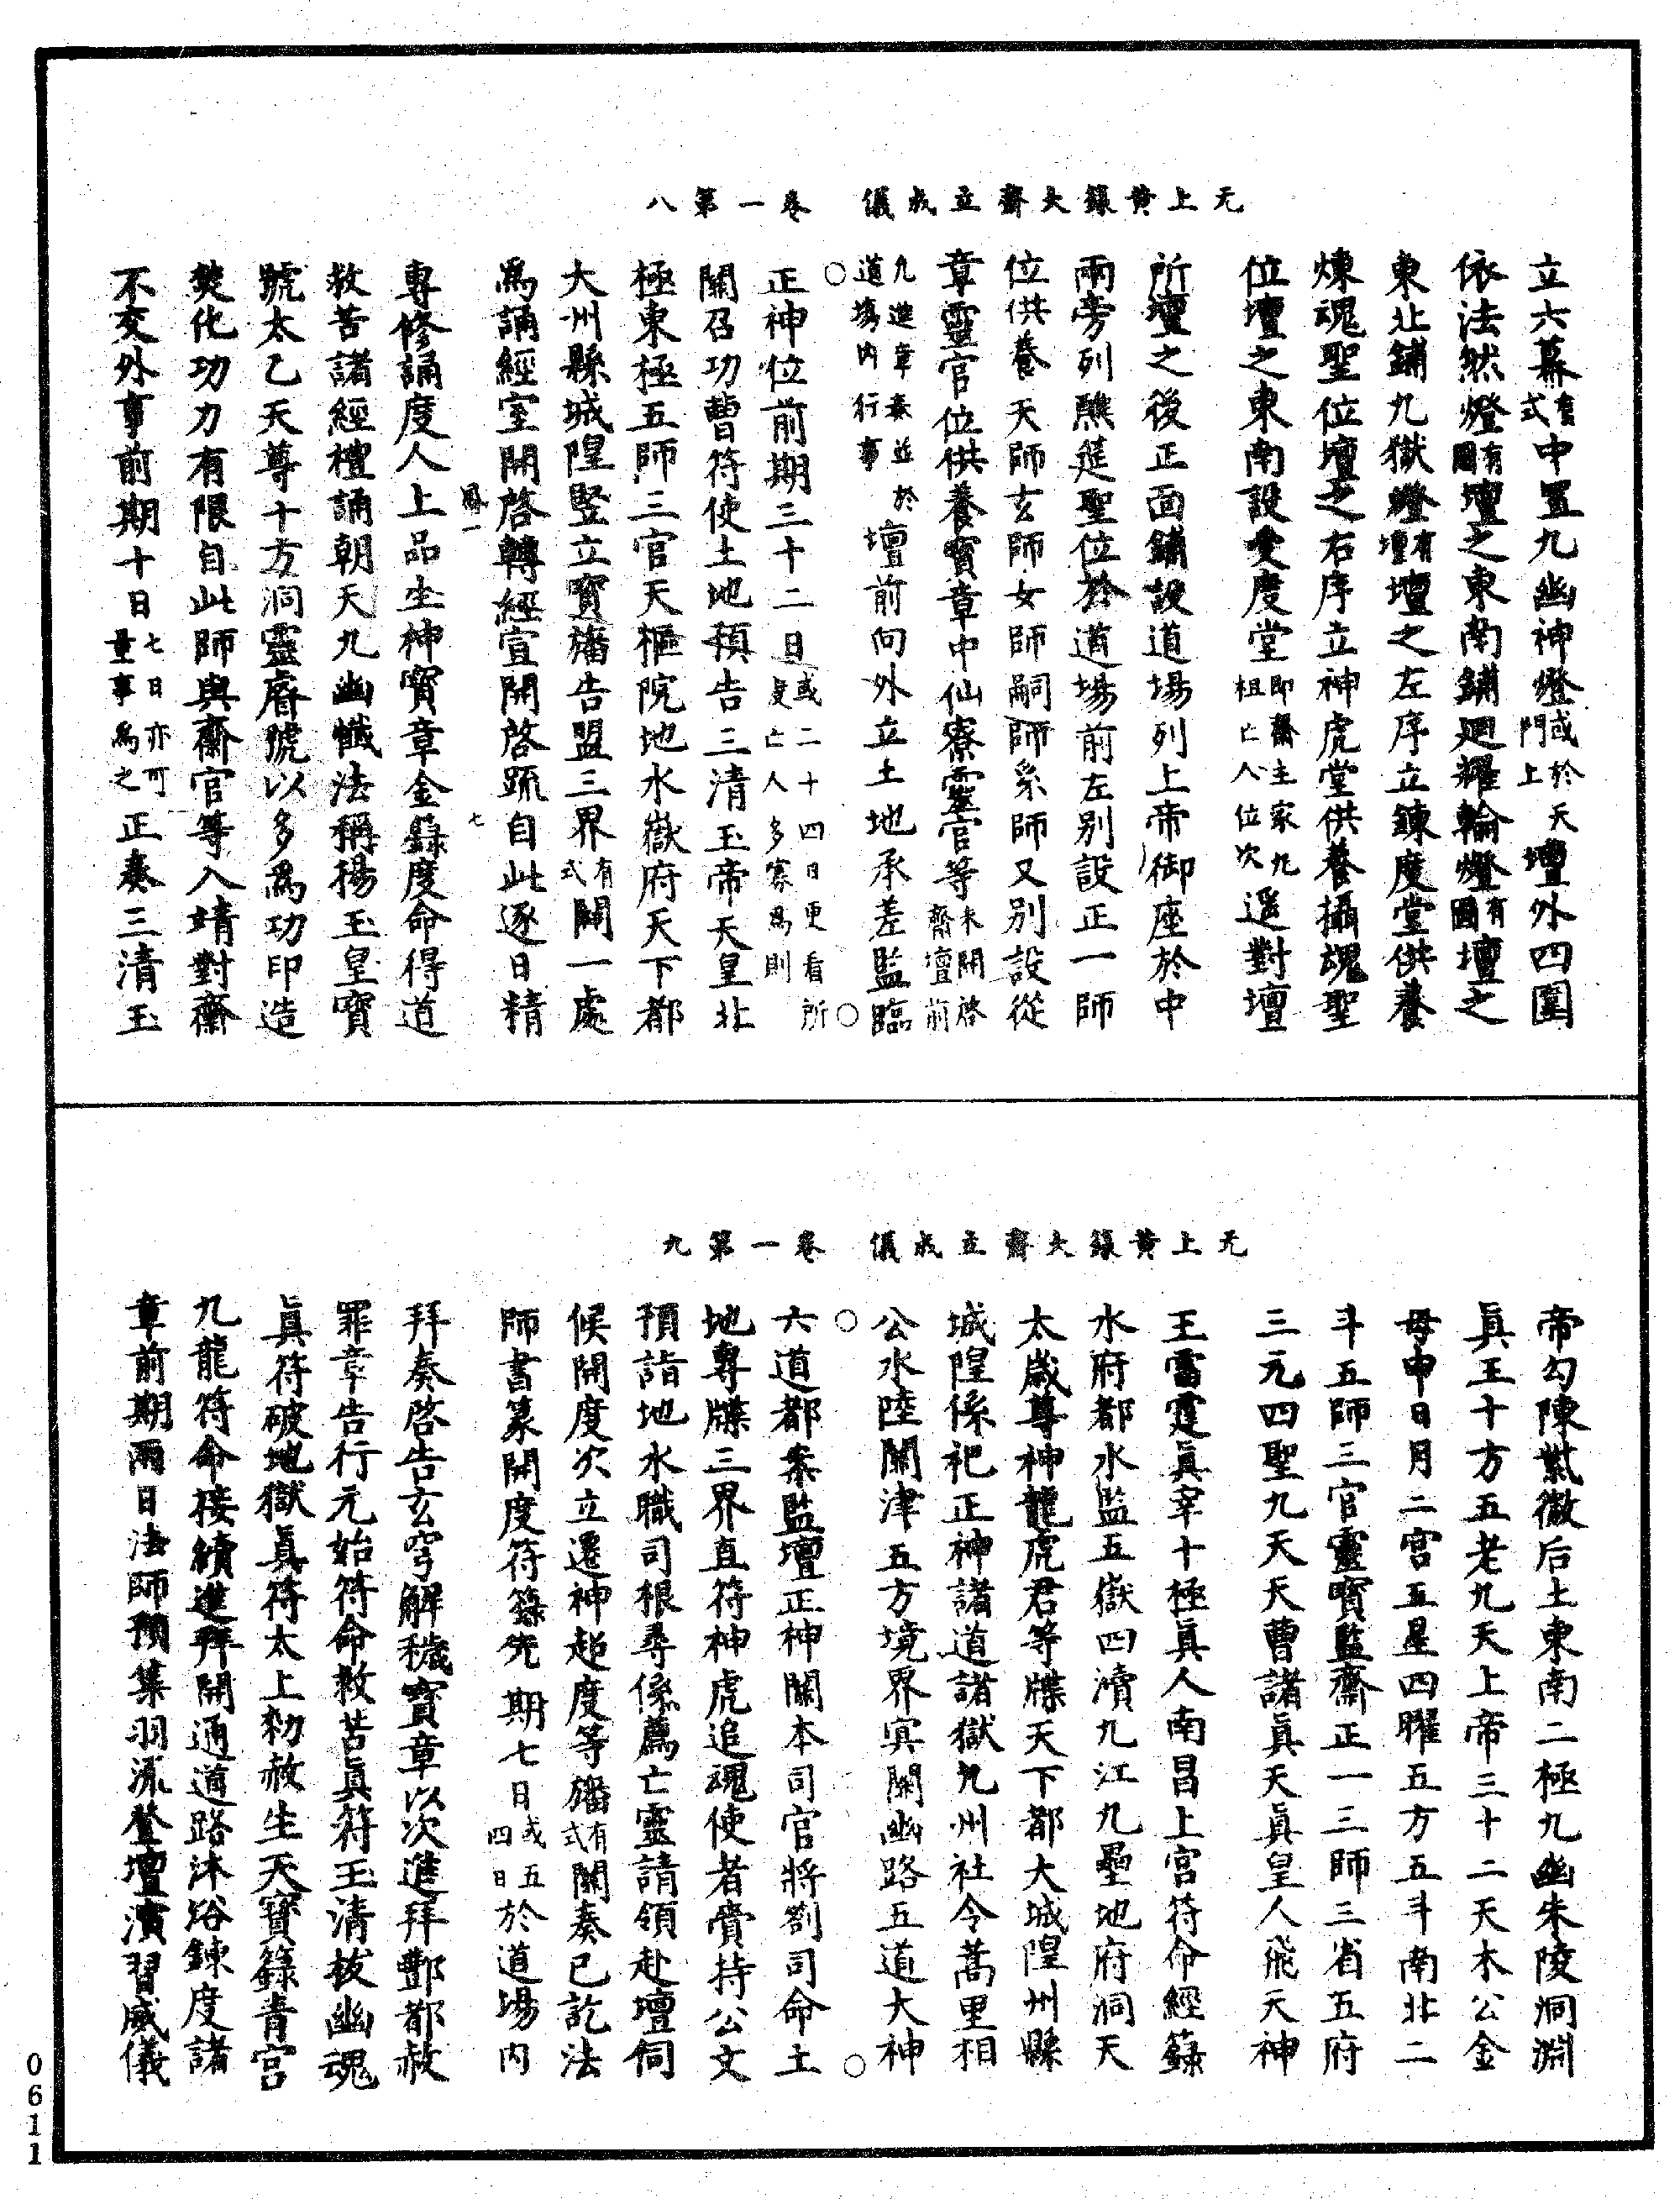 无上黃籙大齋立成儀　卷一第八
立六幕有式中置九幽神燈或於天門上壇外四圍
依法然燈有圖壇之東南鋪迴耀輪燈有圖壇之
東北鋪九獄燈有壇壇之左序立鍊度堂供養
煉魂聖位壇之右序立神虎堂供養攝魂聖
位壇之東南設受度堂即齋主家九祖亡人位次遥對壇
所壇之後正面鋪設道場列上帝御座於中
兩旁列醮筵聖位於道場前左別設正一師
位供養天師玄師女師嗣師系師又別設從
章靈官位供養寶章中仙寮靈官等未開啓齋壇前
凡進章奏並於道場内行事壇前向外立土地承差監臨
正神位前期三十二日或二十四日更看所度亡人多寡爲則
關召功曹符使土地預告三清玉帝天皇北
極東極五師三官天樞院地水嶽府天下都
大州縣城隍竪立寶旛告盟三界有式闢一處
爲誦經室開啓轉經宣開啓䟽自此逐日精
專修誦度人上品生神寶章金籙度命得道
救苦諸經禮誦朝天九幽懺法稱揚玉皇寶
號太乙天尊十方洞靈睿號以多爲功印造
焚化功力有限自此師與齋官等入靖對齋
不交外事前期十日七日亦可量事爲之正奏三清玉
无上黃籙大齋立成儀　卷一第九
帝勾陳紫微后土東南二極九幽朱陵洞淵
眞王十方五老九天上帝三十二天木公金
母申日月二宮五星四曜五方五斗南北二
斗五師三官靈寶監齋正一三師三省五府
三元四聖九天天曹諸眞天眞皇人飛天神
王雷霆眞宰十極眞人南昌上宮符命經籙
水府都水監五嶽四瀆九江九壘地府洞天
太歲尊神龍虎君等牒天下都大城隍州縣
城隍係祀正神諸道諸獄九州社令蒿里相
公水陸關津五方境界冥關幽路五道大神
六道都案監壇正神關本司官將劄司命土
地專牒三界直符神虎追魂使者賫持公文
預詣地水職司根尋係薦亡靈請領赴壇伺
候開度次立遷神超度等旛有式關奏已訖法
師書篆開度符籙先期七日或五四日於道場内
拜奏啓告玄穹解穢寶章以次進拜酆都赦
罪章告行元始符命救苦眞符玉清拔幽魂
眞符破地獄眞符太上勑赦生天寶籙青宮
九龍符命接續進拜開通道路沐浴鍊度諸
章前期兩日法師預集羽流登壇演習威儀
0611